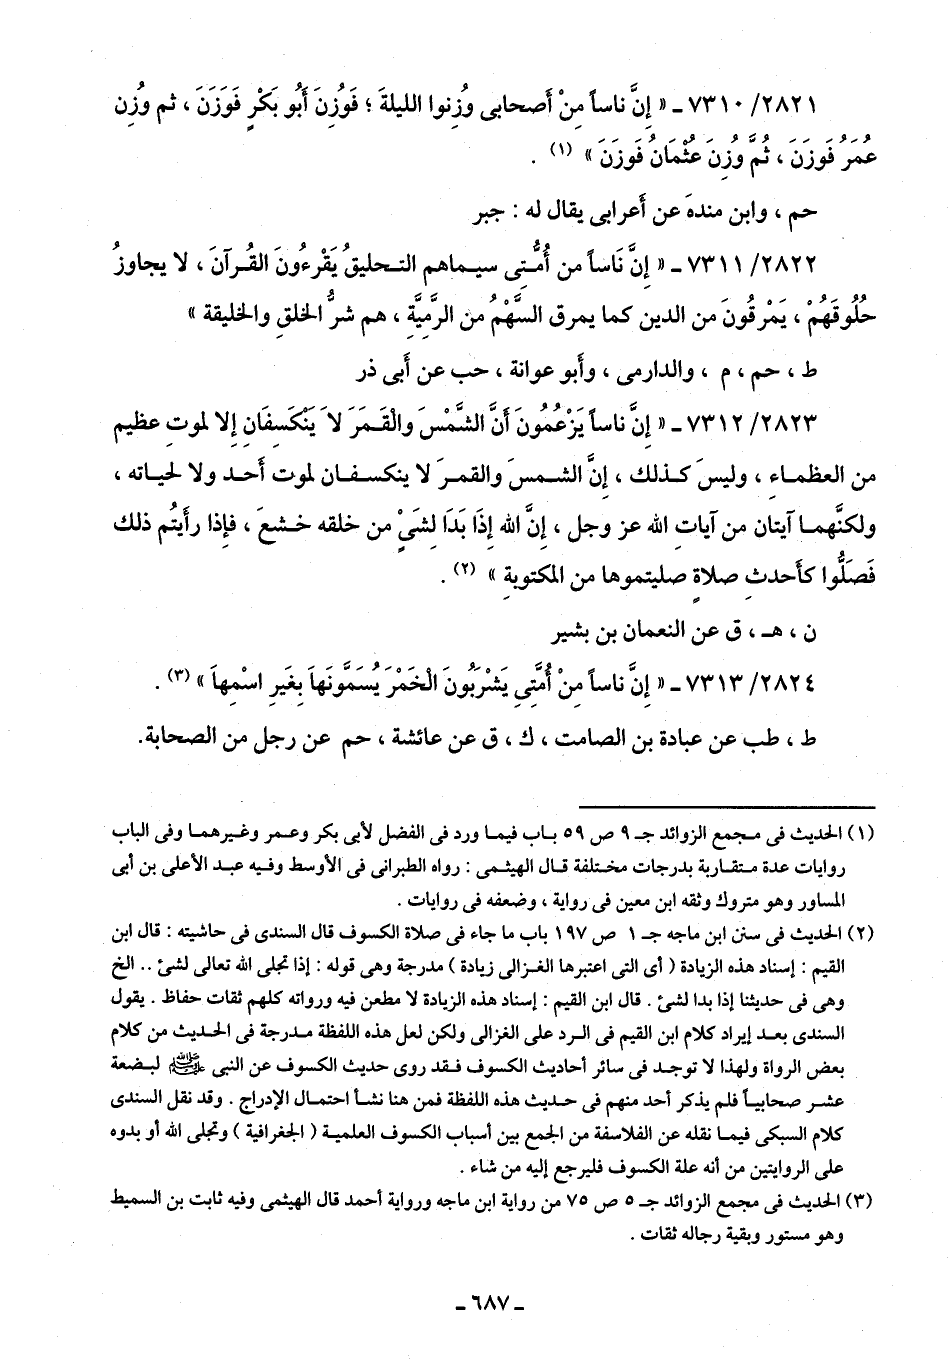 ٢٨٢١/ ٧٣١٠ ـ « إِنَّ ناساً مِنْ أَصحابى وُزِنوا الليلةَ ؛ فَوُزِنَ أَبُو بَكْرٍ فَوَزَنَ ، ثم وُزِن
عُمَرُ فَوَزَنَ ، ثُمَّ وُزِنَ عثْمَانُ فَوَزَنَ » (١) .
حم ، وابن مندهَ عن أَعرابى يقال له : جبر
٢٨٢٢/ ٧٣١١ ـ « إِنَّ نَاساً من أُمَّتِى سيماهم التحليقُ يَقْرءُونَ القُرآنَ ، لا يجاوزُ
حُلُوقَهُمْ ، يَمْرقُونَ من الدين كما يمرق السَّهْمُ من الرَّمِيَّةِ ، هم شرُّ الخلقِ والخليقة »
ط ، حم ، م ، والدارمى ، وأَبو عوانة ، حب عن أَبى ذر
٢٨٢٣/ ٧٣١٢ ـ « إِنَّ ناساً يَزْعُمُونَ أَنَّ الشَّمْسَ والْقَمَرَ لاَ يَنْكَسِفَانِ إِلا لموتِ عظيم
من العظماءِ ، وليسَ كذلك ، إِنَّ الشمسَ والقمرَ لا ينكسفان لموت أَحد ولا لحياته ،
ولكنَّهما آيتان من آيات الله عز وجل ، إِنَّ الله إِذَا بَدَا لِشَىْءٍ من خلقه خشعَ ، فإِذا رأَيتُم ذلك
فَصَلُّوا كأَحدثِ صلاةٍ صليتموها من المكتوبةِ » (٢) .
ن ، هـ ، ق عن النعمان بن بشير
٢٨٢٤/ ٧٣١٣ ـ « إِنَّ ناساً مِنْ أُمَّتِى يَشْرَبُونَ الْخَمْرَ يُسَمَّونَهاَ بِغَيرِ اسْمِهاَ » (٣) .
ط ، طب عن عبادة بن الصامت ، ك ، ق عن عائشة ، حم عن رجل من الصحابة.
(١) الحديث فى مجمع الزوائد جـ ٩ ص ٥٩ باب فيما ورد فى الفضل لأبى بكر وعمر وغيرهما وفى الباب
روايات عدة متقاربة بدرجات مختلفة قال الهيثمى : رواه الطبرانى فى الأوسط وفيه عبد الأعلى بن أبى
المساور وهو متروك وثقه ابن معين فى رواية ، وضعفه فى روايات .
(٢) الحديث فى سنن ابن ماجه جـ ١ ص ١٩٧ باب ما جاء فى صلاة الكسوف قال السندى فى حاشيته : قال ابن
القيم : إسناد هذه الزيادة ( أى التى اعتبرها الغزالى زيادة ) مدرجة وهى قوله : إذا تجلى الله تعالى لشئ .. الخ
وهى فى حديثنا إذا بدا لشئ . قال ابن القيم : إسناد هذه الزيادة لا مطعن فيه ورواته كلهم ثقات حفاظ . يقول
السندى بعد إيراد كلام ابن القيم فى الرد على الغزالى ولكن لعل هذه اللفظة مدرجة فى الحديث من كلام
بعض الرواة ولهذا لا توجد فى سائر أحاديث الكسوف فقد روى حديث الكسوف عن النبى ﷺ لبضعة
عشر صحابياً فلم يذكر أحد منهم فى حديث هذه اللفظة فمن هنا نشأ احتمال الإدراج . وقد نقل السندى
كلام السبكى فيما نقله عن الفلاسفة من الجمع بين أسباب الكسوف العلمية ( الجغرافية ) وتجلى الله أو بدوه
على الروايتين من أنه علة الكسوف فليرجع إليه من شاء .
(٣) الحديث فى مجمع الزوائد جـ ٥ ص ٧٥ من رواية ابن ماجه ورواية أحمد قال الهيثمى وفيه ثابت بن السميط
وهو مستور وبقية رجاله ثقات .
ـ ٦٨٧ ـ